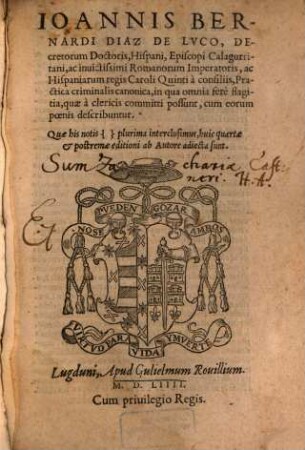 IOANNIS BER-
NARDI DIAZ DE LVCO, DE-
cretorum Doctoris, Hispani, Episcopi Calagurri-
tani, ac inuictissimi Romanorum Imperatoris, ac
Hispaniarum regis Caroli Quinti à consiliis, Pra-
ctica criminalis canonica, in qua omnia ferè flagi-
tia, quæ à clericis committi possunt, cum eorum
pœnis describuntur.
Quæ his notis { } plurima interclusimus, huic quartæ
& postremæ editioni ab Autore adiecta sunt.
Sum Zachariæ Cast
neri. H. A.
Et
PVEDEN GOZAR
NOSE AMBOS
VIRTVD PARA VIDA Y MVERTE
Lugduni, Apud Gulielmum Rouillium.
M. D. LIIII.
Cum priuilegio Regis.